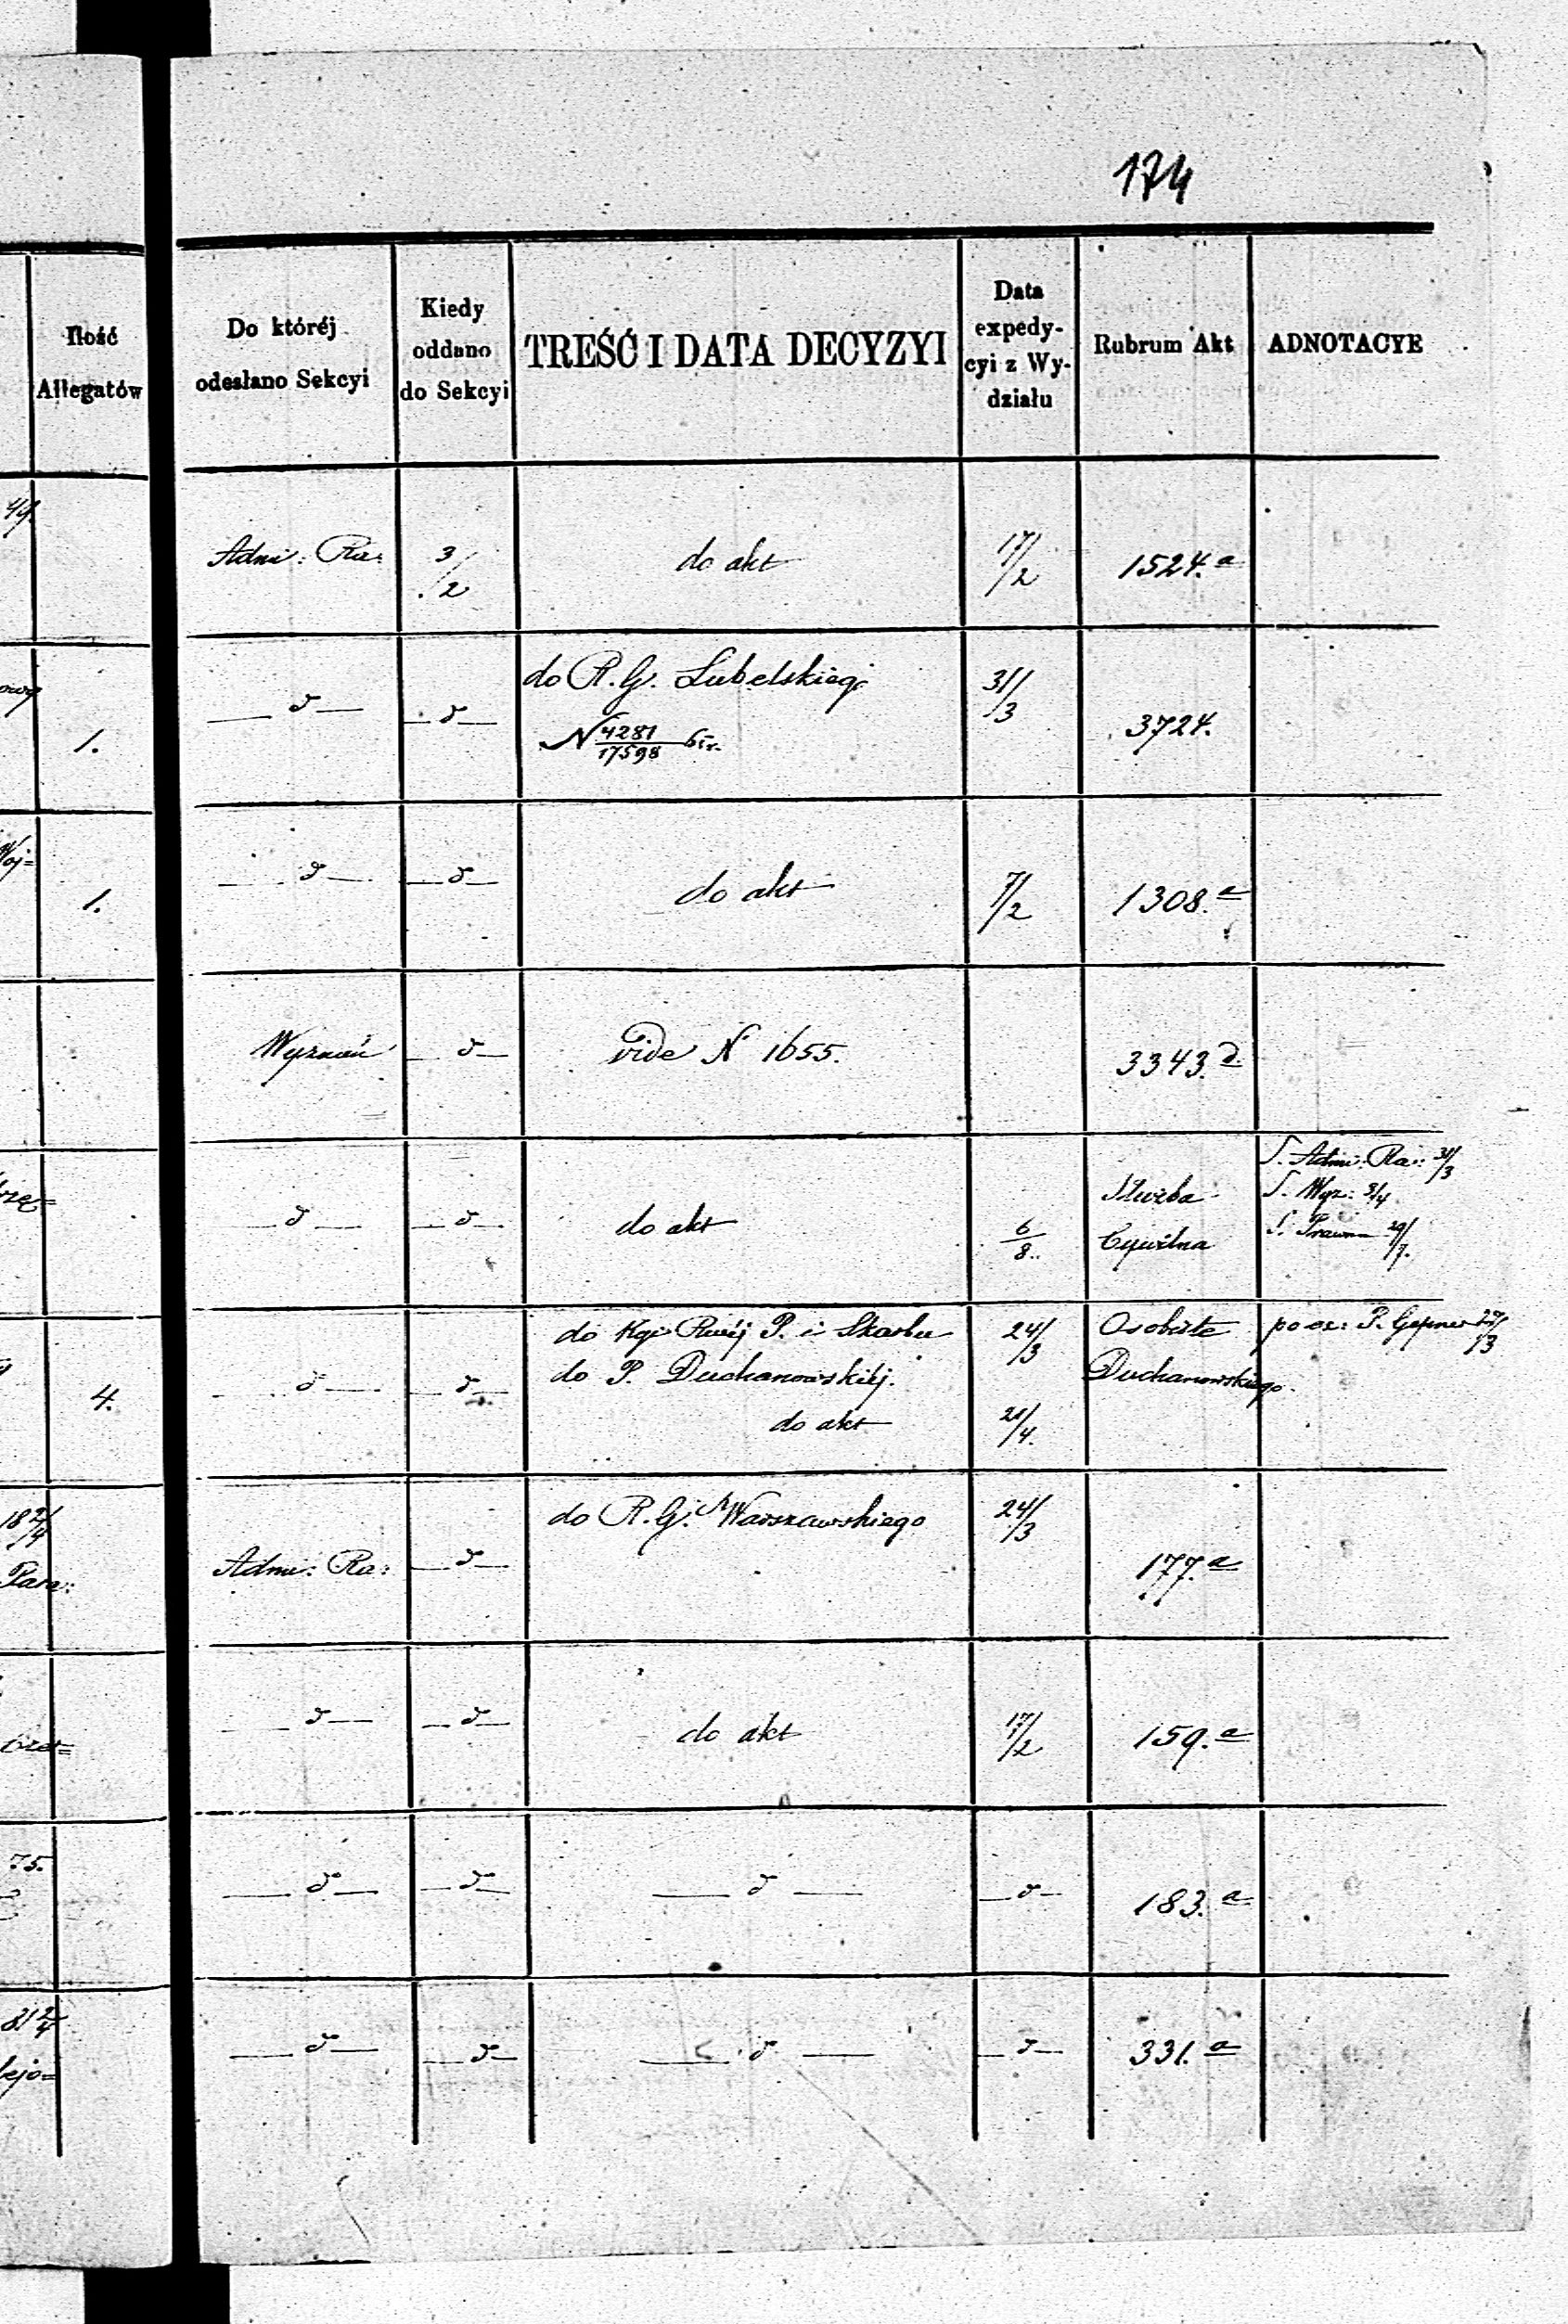 174
Ilość
Allegatów
Do któréj
odesłano Sekcyi
Kiedy
oddano
do Sekcyi
TREŚĆ I DATA DECYZYI
Data
expedy-
cyi z Wy-
działu
Rubrum Akt
ADNOTACYE
49.
Admi: Ra: 3/2 do akt 17/2 1524.a
1. —d— —d— do R. G. Lubelskiego 31/3 3724.
N 4281/17598
1. —d— —d— do akt 7/2 1308.a
Wyznań —d— Vide N 1655. 3343.d
—d— —d— do akt 6/8 Służba
Cywilna
S. Admi: Ra: 31/3
S. Wyz: 3/4
S. Prawna 29/7.
4. —d— —d— do Kgi Rząj P. i Skarbu 24/3
do P. Duchanowskiéj.
do akt 21/4.
Osobiste
Duchanowskiego.
P. Gepner 27/3
18 2/4
Para:
Admi: Ra: —d— do R. G. Warszawskiego 24/3 177.a
—d— —d— do akt 17/2 159.a
75.
—d— —d— —d— —d— 183.a
81 2/4
—d— —d— —d— —d— 331.a